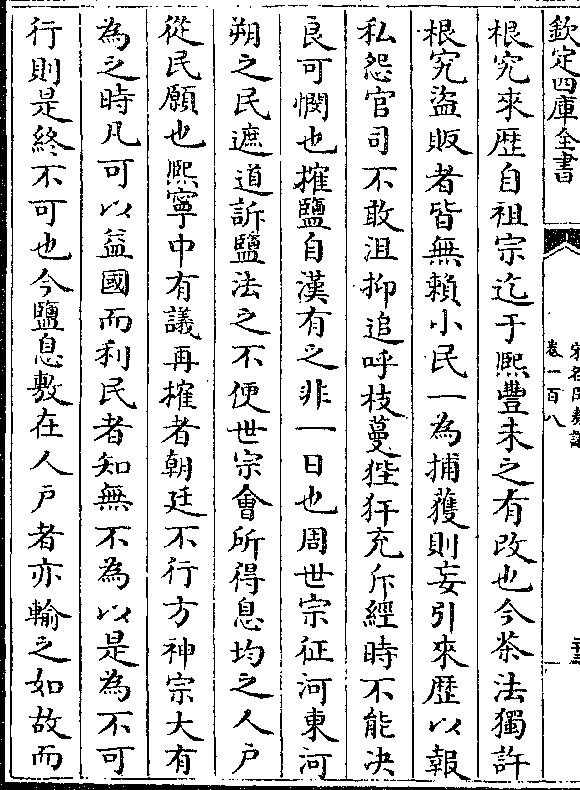 欽定四庫全書
卷一百八
根究來歴自祖宗迄于熙豐未之有改也今茶法獨許
根究盜販者皆無賴小民一為捕獲則妄引來歴以報
私怨官司不敢沮抑追呼枝蔓狴犴充斥經時不能决
良可憫也搉鹽自漢有之非一日也周世宗征河東河
朔之民遮道訴鹽法之不便世宗會所得息均之人戶
從民願也熙寧中有議再搉者朝廷不行方神宗大有
為之時凡可以益國而利民者知無不為以是為不可
行則是終不可也今鹽息敷在人戶者亦輸之如故而